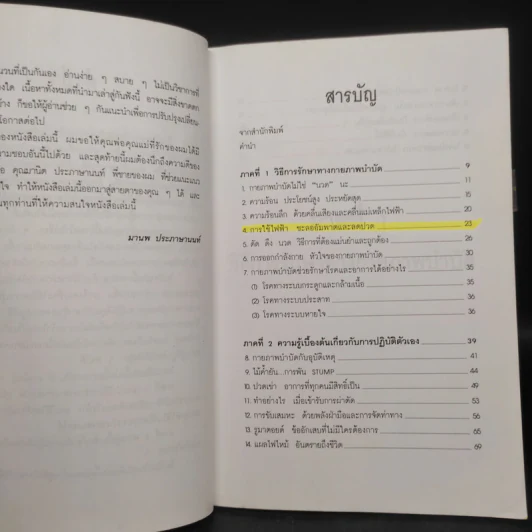 นวนที่เป็นกันเอง อ่านง่าย ๆ สบาย ๆ ไม่เป็นวิชาการอี
งใด เนื้อหาทั้งหมดที่นำมาเล่าสู่กันฟังนี้ อาจจะมีสิ่งขาดตก
ง ก็ขอให้ผู้อ่านช่วย ๆ กันแนะนำเพื่อการปรับปรุงเปลี่ยน-
โอกาสต่อไป
องหนังสือเล่มนี้ ผมขอให้คุณพ่อคุณแม่ที่รักของผมได้มี
วามชอบอันนี้ไปด้วย และสุดท้ายนี้ผมต้องนึกถึงความดีของ
คุณมานิต ประภาษานนท์ พี่ชายของผม ที่ช่วยแนะแนว
ใจ ทำให้หนังสือเล่มนี้ออกมาสู่สายตาของคุณ ๆ ได้ และ
ทุกท่านที่ให้ความสนใจหนังสือเล่มนี้
มานพ ประภาษานนท์
สารบัญ
จากสำนักพิมพ์
คำนำ
ภาคที่ 1 วิธีการรักษาทางกายภาพบำบัด 9
1. กายภาพบำบัดไม่ใช่ "นวด" นะ 11
2. ความร้อน ประโยชน์สูง ประหยัดสุด 15
3. ความร้อนลึก ด้วยคลื่นเสียงและคลื่นแม่เหล็กไฟฟ้า 20
4. การใช้ไฟฟ้า ชะลออัมพาตและลดปวด 23
5. ดัด ดึง นวด วิธีการที่ต้องแม่นยำและถูกต้อง 26
6. การออกกำลังกาย หัวใจของกายภาพบำบัด 30
7. กายภาพบำบัดช่วยรักษาโรคและอาการได้อย่างไร 35
(1) โรคทางระบบกระดูกและกล้ามเนื้อ 35
(2) โรคทางระบบประสาท 36
(3) โรคทางระบบหายใจ 36
ภาคที่ 2 ความรู้เบื้องต้นเกี่ยวกับการปฏิบัติตัวเอง 39
8. กายภาพบำบัดกับอุบัติเหตุ 41
9. ไม้ค้ำยัน...การพัน STUMP 44
10. ปวดเข่า อาการที่ทุกคนมีสิทธิ์เป็น 49
11. ทำอย่างไร เมื่อเข้ารับการผ่าตัด 53
12. การขับเสมหะ ด้วยพลังฝ่ามือและการจัดท่าทาง 56
13. รูมาตอยด์ ข้ออักเสบที่ไม่มีใครต้องการ 65
14. แผลไฟไหม้ อันตรายถึงชีวิต 69